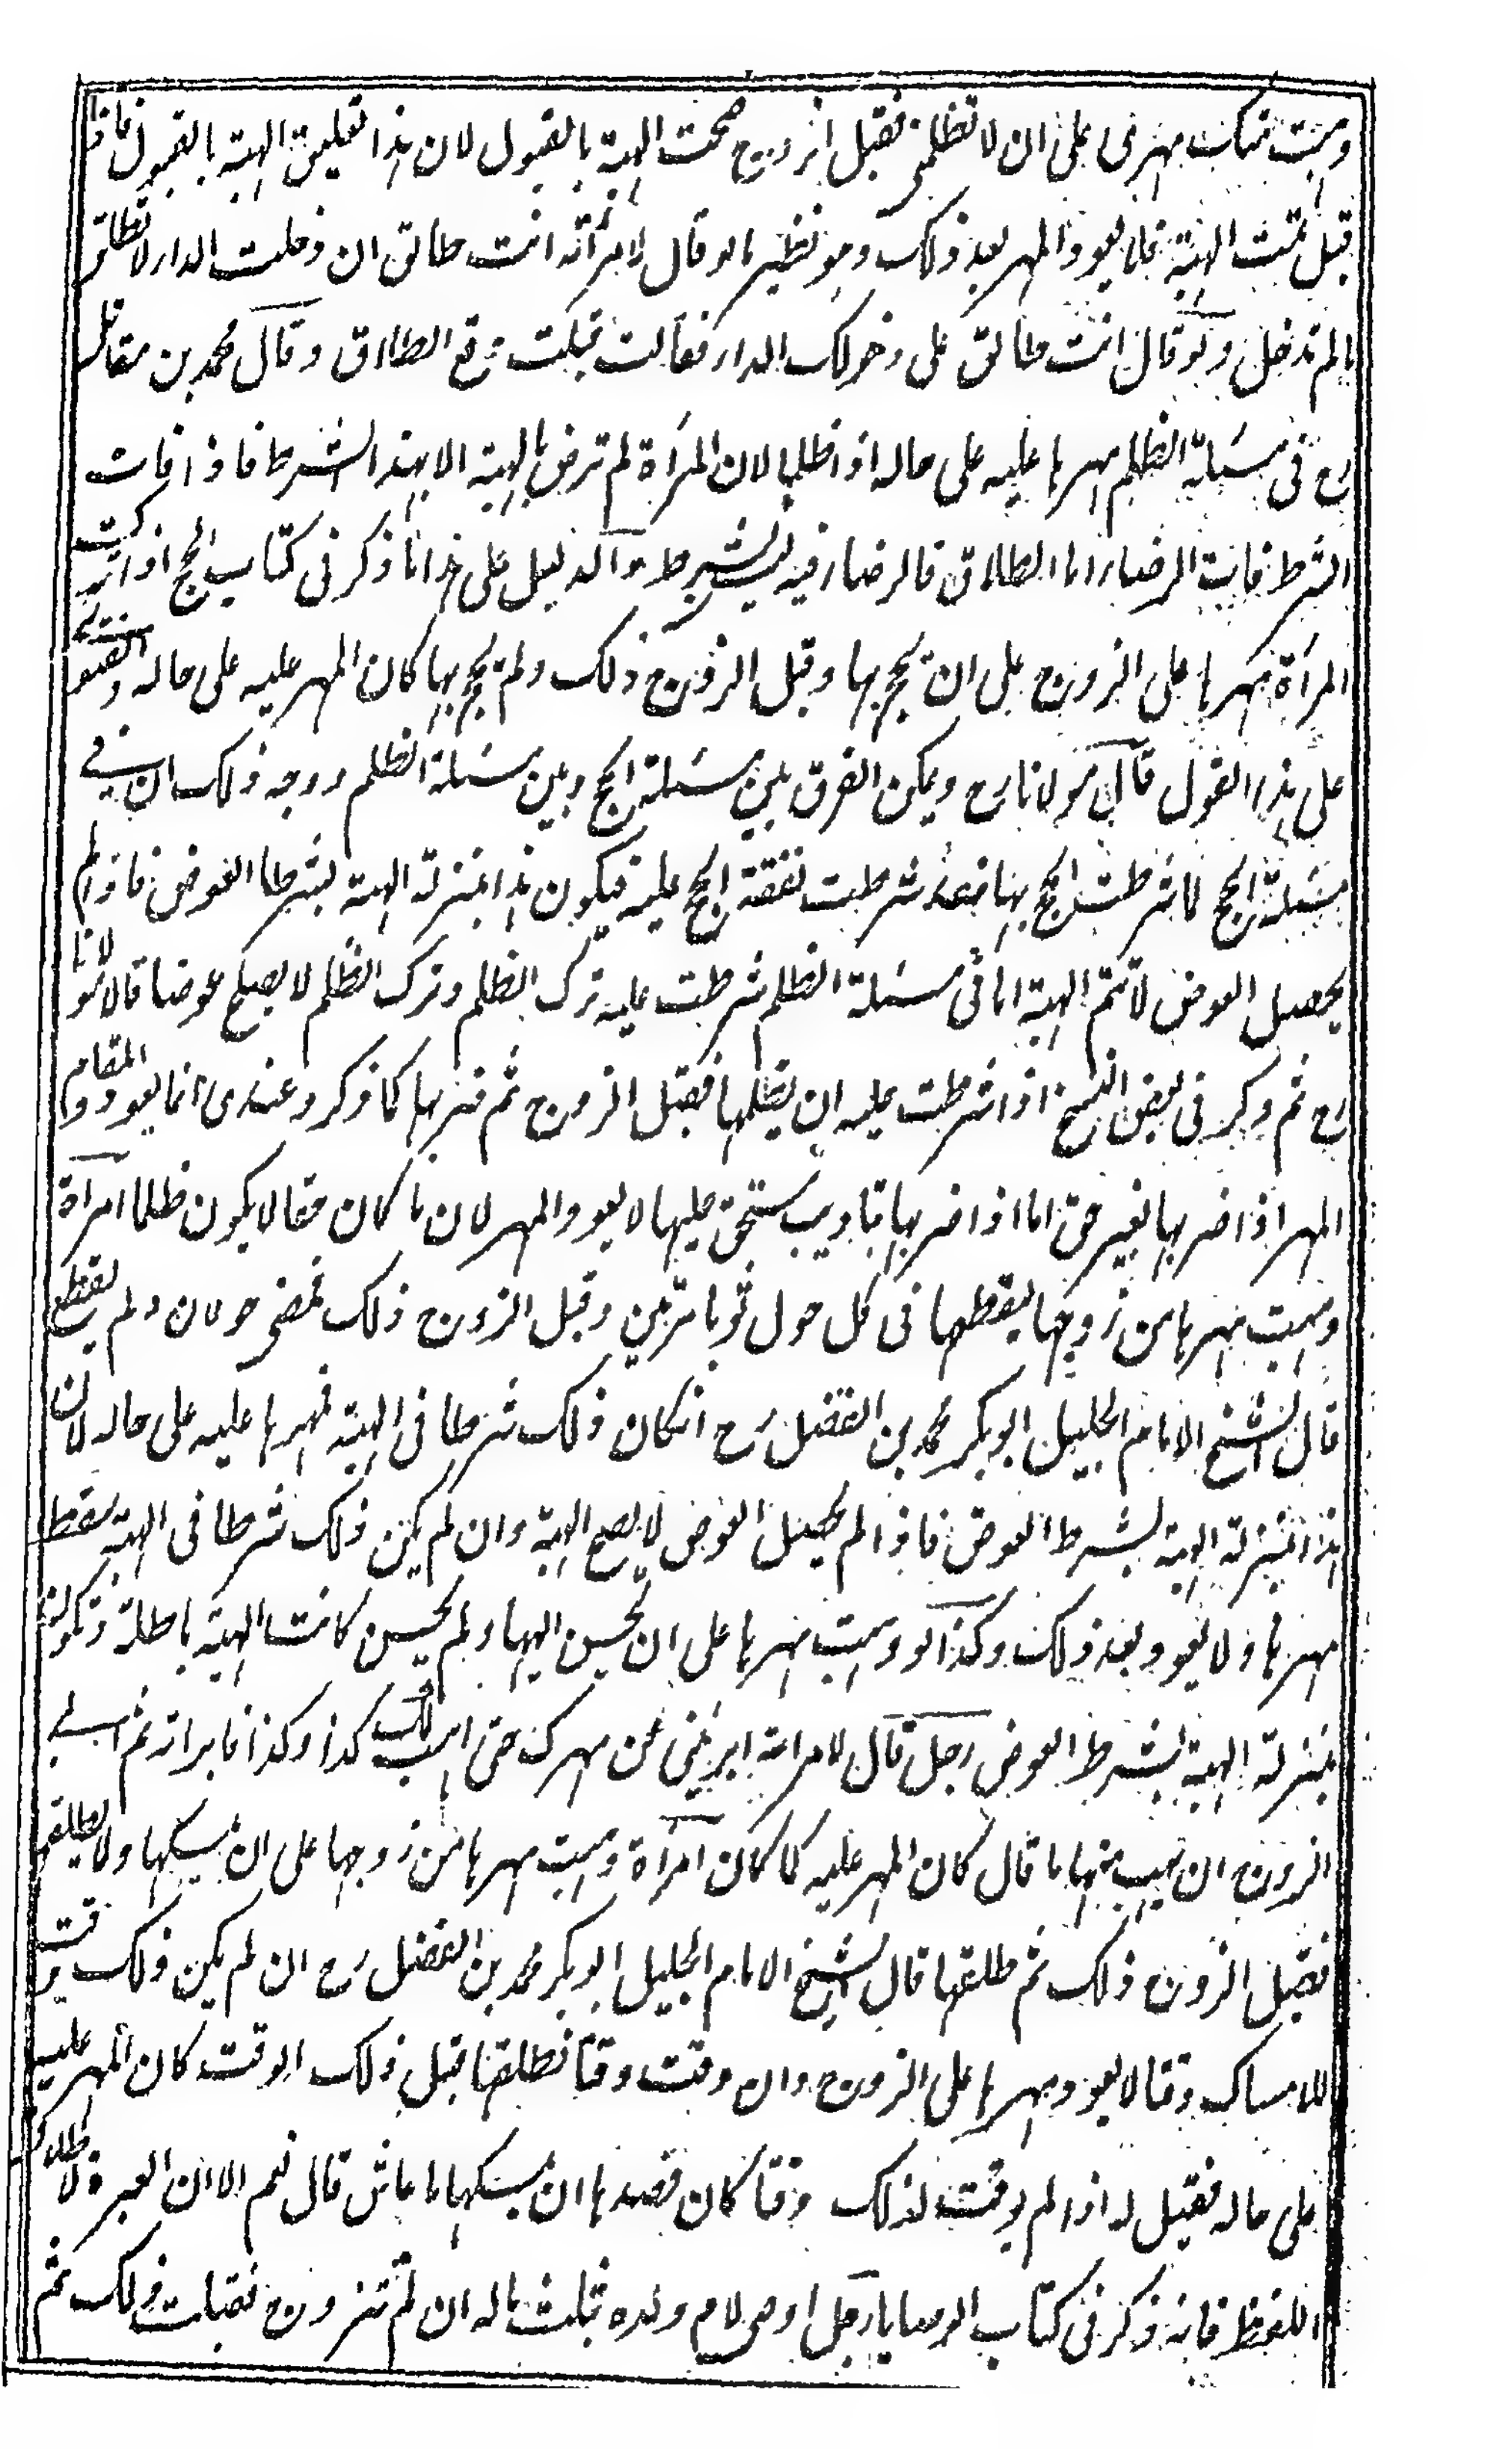 وهبت منك مهري على ان لا تظلمني فقبل الزوج صحت الهبة بالقبول لان هذا تعليق الهبة بالقبول فاذا
قبل تمت الهبة فلا يعود المهر بعد ذلك وهو نظير ما لو قال لامرأته انت طالق ان دخلت الدار لا تطلق
ما لم تدخل ولو قال انت طالق على دخولك الدار فقالت قبلت وقع الطلاق وقال محمد بن مقاتل
رح في مسئلة الظلم مهرها عليه على حاله اذا ظلمها لان المرأة لم ترض بالهبة الا بهذا الشرط فاذا فات
الشرط فات الرضا اما الطلاق فالرضا فيه ليس بشرط والدليل على هذا ما ذكر في كتاب الحج اذا تركت
المرأة مهرها على الزوج على ان يحج بها وقبل الزوج ذلك ولم يحج بها كان المهر عليه على حاله والفتوى
على هذا القول قال مولانا رح ويمكن الفرق بين مسئلة الحج وبين مسئلة الظلم ووجه ذلك ان في
مسئلة الحج لما شرطت الحج بها فقد شرطت نفقة الحج عليه فيكون هذا بمنزلة الهبة بشرط العوض فاذا لم
يحصل العوض لا تتم الهبة اما في مسئلة الظلم شرطت عليه ترك الظلم وترك الظلم لا يصلح عوضا قال مولانا
رح ثم ذكر في بعض النسخ اذا شرطت عليه ان لا يظلمها فقبل الزوج ثم ضربها كما ذكر وعندي انما يعود
المهر اذا ضربها بغير حق اما اذا ضربها بتأديب مستحق عليها لا يعود المهر لان ما كان حقا لا يكون ظلما امرأة
وهبت مهرها من زوجها ليقطعها في كل حول ثوبا مرتين وقبل الزوج ذلك فمضى حولان ولم يقطع
قال الشيخ الامام الجليل ابو بكر محمد بن الفضل رح انكان ذلك شرطا في الهبة فمهرها عليه على حاله لان
هذا بمنزلة الهبة بشرط العوض فاذا لم يحصل العوض لا يصح الهبة وان لم يكن ذلك شرطا في الهبة سقط
مهرها ولا يعود بعد ذلك وكذا لو وهبت مهرها على ان يحسن اليها ولم يحسن كانت الهبة باطلة وتكون
بمنزلة الهبة بشرط العوض رجل قال لامرأته ابرئيني عن مهرك حتى اهب لك كذا وكذا فابرأته ثم ابى
الزوج ان يهب منها ما قال كان المهر عليه كما كان امرأة وهبت مهرها من زوجها على ان يمسكها ولا يطلقها
فقبل الزوج ذلك ثم طلقها قال الشيخ الامام الجليل ابو بكر محمد بن الفضل رح ان لم يكن ذلك وقت
للامساك وقتا لا يعود مهرها على الزوج وان وقت وقتا فطلقها قبل ذلك الوقت كان المهر عليه
على حاله فقيل له اذا لم يوقت لذلك وقتا كان قصدها ان يمسكها ما عاش قال نعم الا ان العبرة لاطلاق
اللفظ فانه ذكر في كتاب الوصايا رجل اوصى لام ولده بثلث ماله ان لم تتزوج فقبلت ذلك ثم